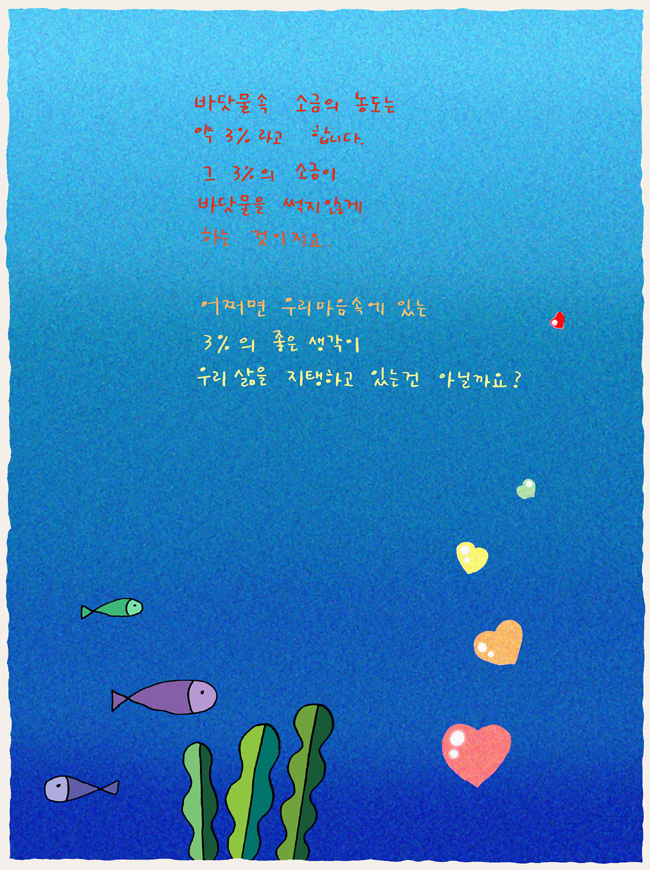 바닷물속 소금의 농도는
약 3%라고 합니다.
그 3%의 소금이
바닷물을 썩지않게
하는 것이지요.
어쩌면 우리마음속에 있는
3%의 좋은 생각이
우리 삶을 지탱하고 있는건 아닐까요?